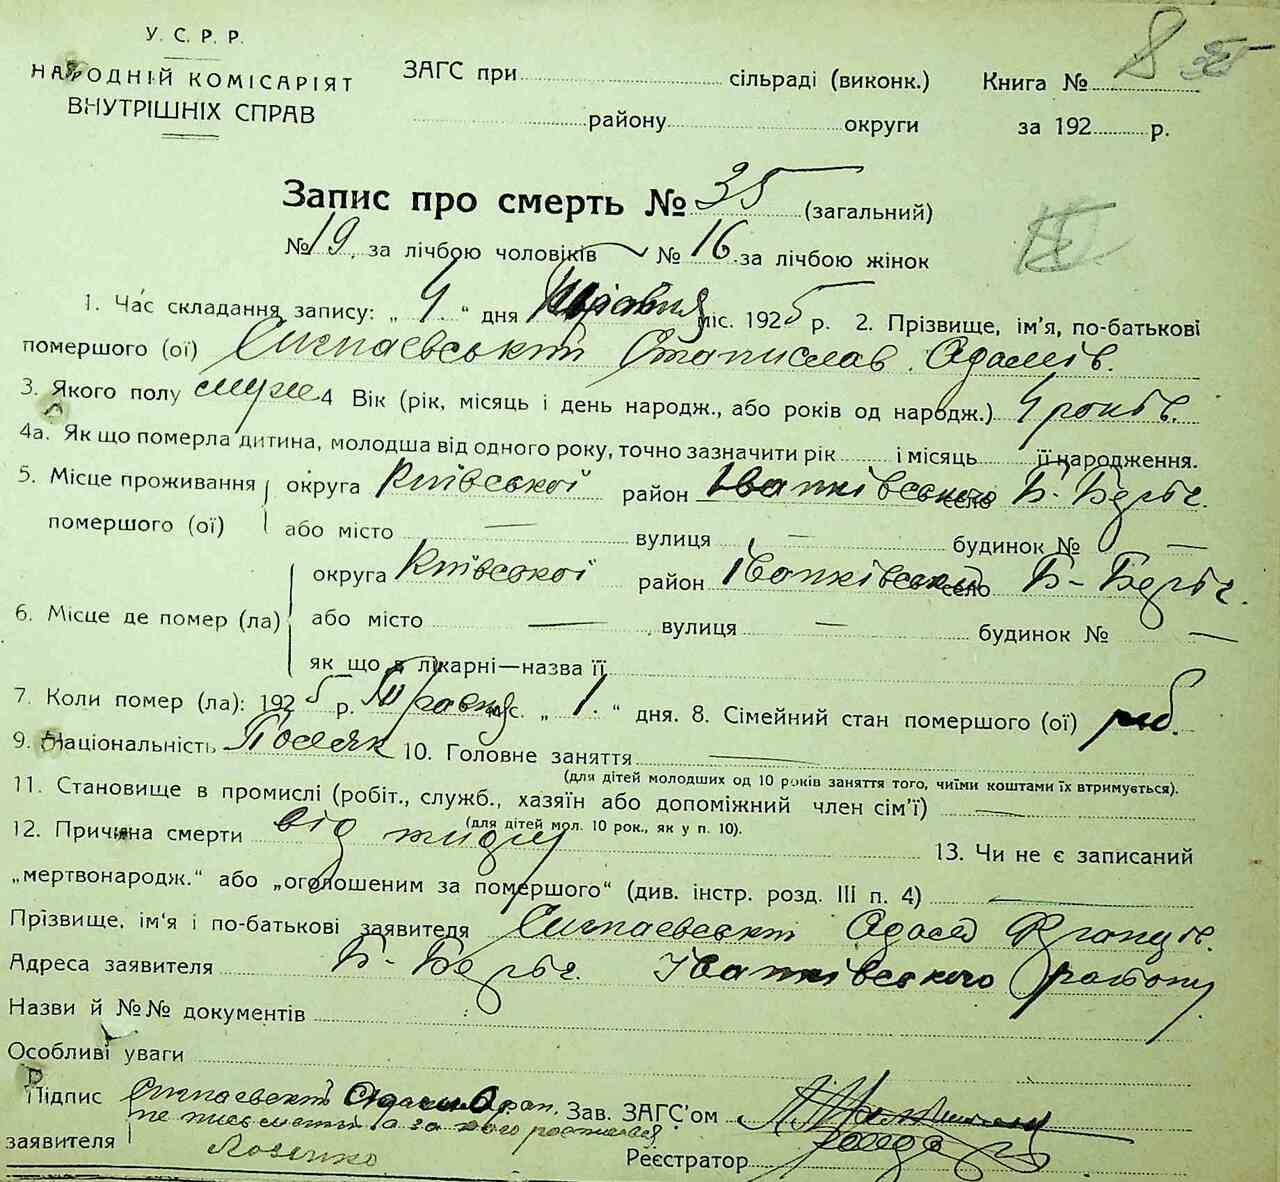 У. С. Р. Р.
НАРОДНІЙ КОМІСАРІЯТ
ВНУТРІШНІХ СПРАВ
ЗАГС при сільраді (виконк.)
району округи
Книга № 8
за 192 р.
Запис про смерть № 35 (загальний)
№ 19, за лічбою чоловіків № 16 за лічбою жінок
1. Час складання запису: „ 4 “ дня Травня міс. 1925 р. 2. Прізвище, ім’я, по-батькові
помершого (ої) Станислав Адамів.
3. Якого полу муже 4 Вік (рік, місяць і день народж., або років од народж.) 4 років.
4а. Як що померла дитина, молодша від одного року, точно зазначити рік і місяць її народження.
5. Місце проживання округа Київської район Іванківського село Б-
помершого (ої) або місто — вулиця — будинок № —
округа Київської район Іванківський село Б-
6. Місце де помер (ла) або місто — вулиця — будинок № —
як що в лікарні—назва її
7. Коли помер (ла): 1925 р. Травня міс. „ 1. “ дня. 8. Сімейний стан помершого (ої)
9. Національність Поляк 10. Головне заняття —
(для дітей молодших од 10 років заняття того, чиїми коштами їх втримується).
11. Становище в промислі (робіт., служб., хазяїн або допоміжний член сім’ї) —
(для дітей мол. 10 рок., як у п. 10).
12. Причина смерти від 13. Чи не є записаний
„мертвонародж.“ або „оголошеним за помершого“ (див. інстр. розд. III п. 4) —
Прізвище, ім’я і по-батькові заявителя Адам Франців.
Адреса заявителя Б- Іванківського району
Назви й №№ документів
Особливі уваги
Підпис Адам Фран. Зав. ЗАГС’ом
заявителя не письмений а за його росписався
Реєстратор